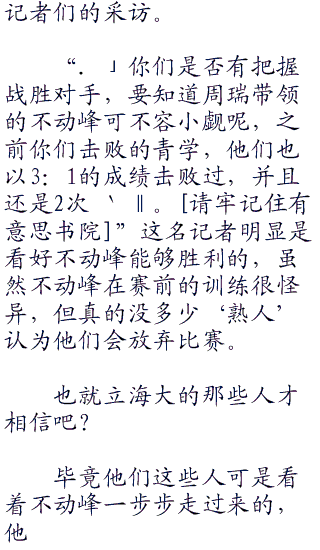 记者们的采访。
“．」你们是否有把握
战胜对手，要知道周瑞带领
的不动峰可不容小觑呢，之
前你们击败的青学，他们也
以3：1的成绩击败过，并且
还是2次‵‖。[请牢记住有
意思书院]”这名记者明显是
看好不动峰能够胜利的，虽
然不动峰在赛前的训练很怪
异，但真的没多少‘熟人’
认为他们会放弃比赛。
也就立海大的那些人才
相信吧？
毕竟他们这些人可是看
着不动峰一步步走过来的，
他